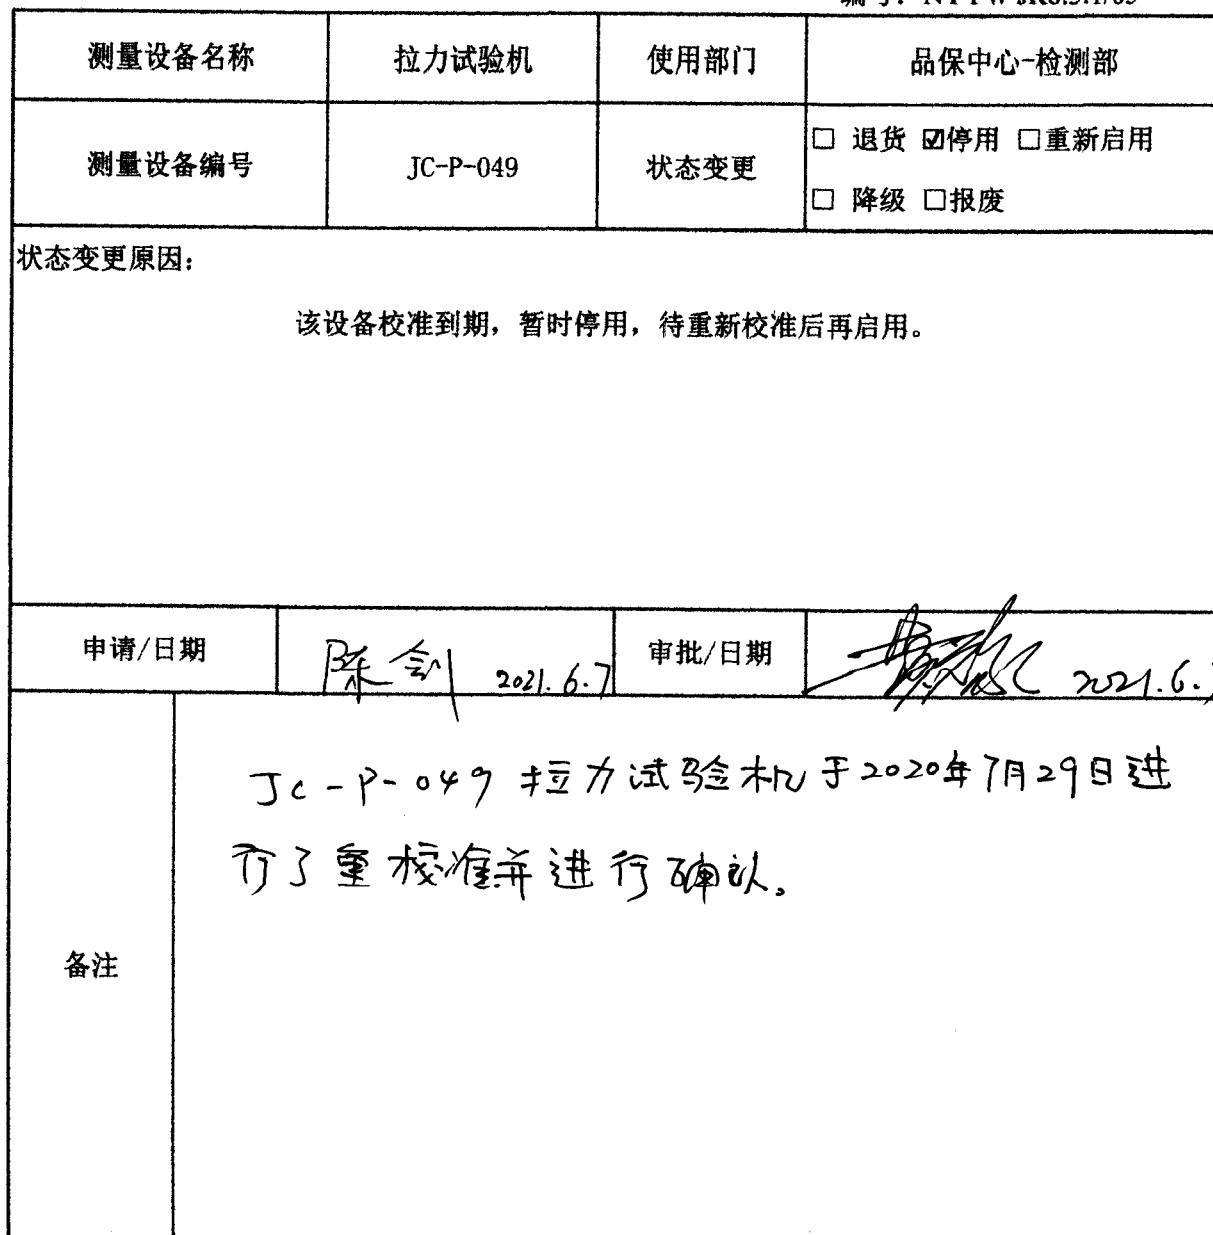 测量设备名称 拉力试验机 使用部门 品保中心-检测部
测量设备编号 JC-P-049 状态变更 □ 退货 ☑停用 □重新启用
□ 降级 □报废
状态变更原因：
该设备校准到期，暂时停用，待重新校准后再启用。
申请/日期 陈剑 2021.6.7 审批/日期 2021.6.
JC-P-049 拉力试验机于2020年7月29日进
行了重校准并进行确认。
备注